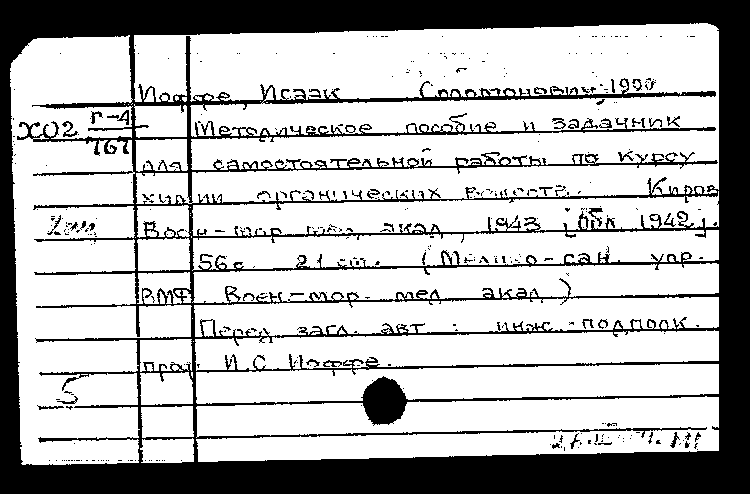 Иоффе, Исаак Соломонович, 1900
ХО2 Г-4
767
Методическое пособие и задачник
для самостоятельной работы по курсу
химии органических веществ. Киров,
Воен-мор. мед. акад., 1943 [обл. 1942].
56 с. 21 см. (Медико-сан. упр.
ВМФ. Воен.-мор. мед. акад.)
Перед загл. авт.: инж.-подполк.
проф. И.С. Иоффе.
5